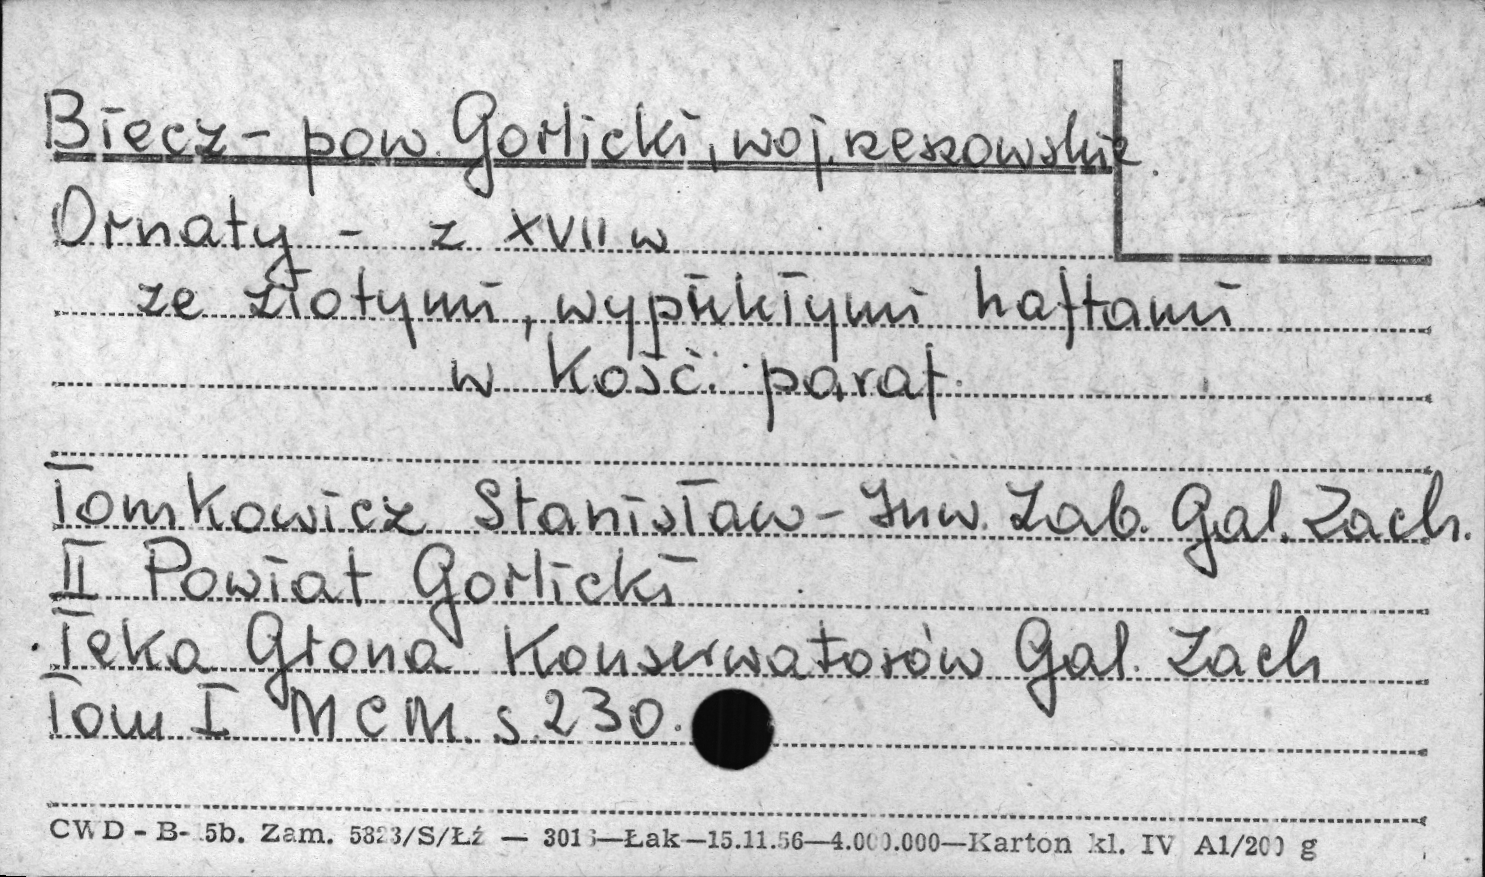 Biecz - pow. Gorlicki, woj. rzeszowskie.
Ornaty - z XVII w
ze złotymi, wypukłymi haftami
w Kość. paraf.
Tomkowicz Stanisław - Inw. Zab. Gal. Zach.
II Powiat Gorlicki
Teka Grona Konserwatorów Gal. Zach
Tom I MCM s. 230.
CWD - B- 5b. Zam. 5823/S/Łź — 3016—Łak—15.11.56—4.000.000—Karton kl. IV A1/200 g